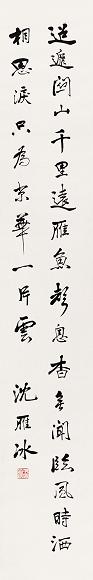 迢遞關山千里遠雁魚彩息杳無聞臨風時洒
相思淚只為京華一片雲
沈雁冰